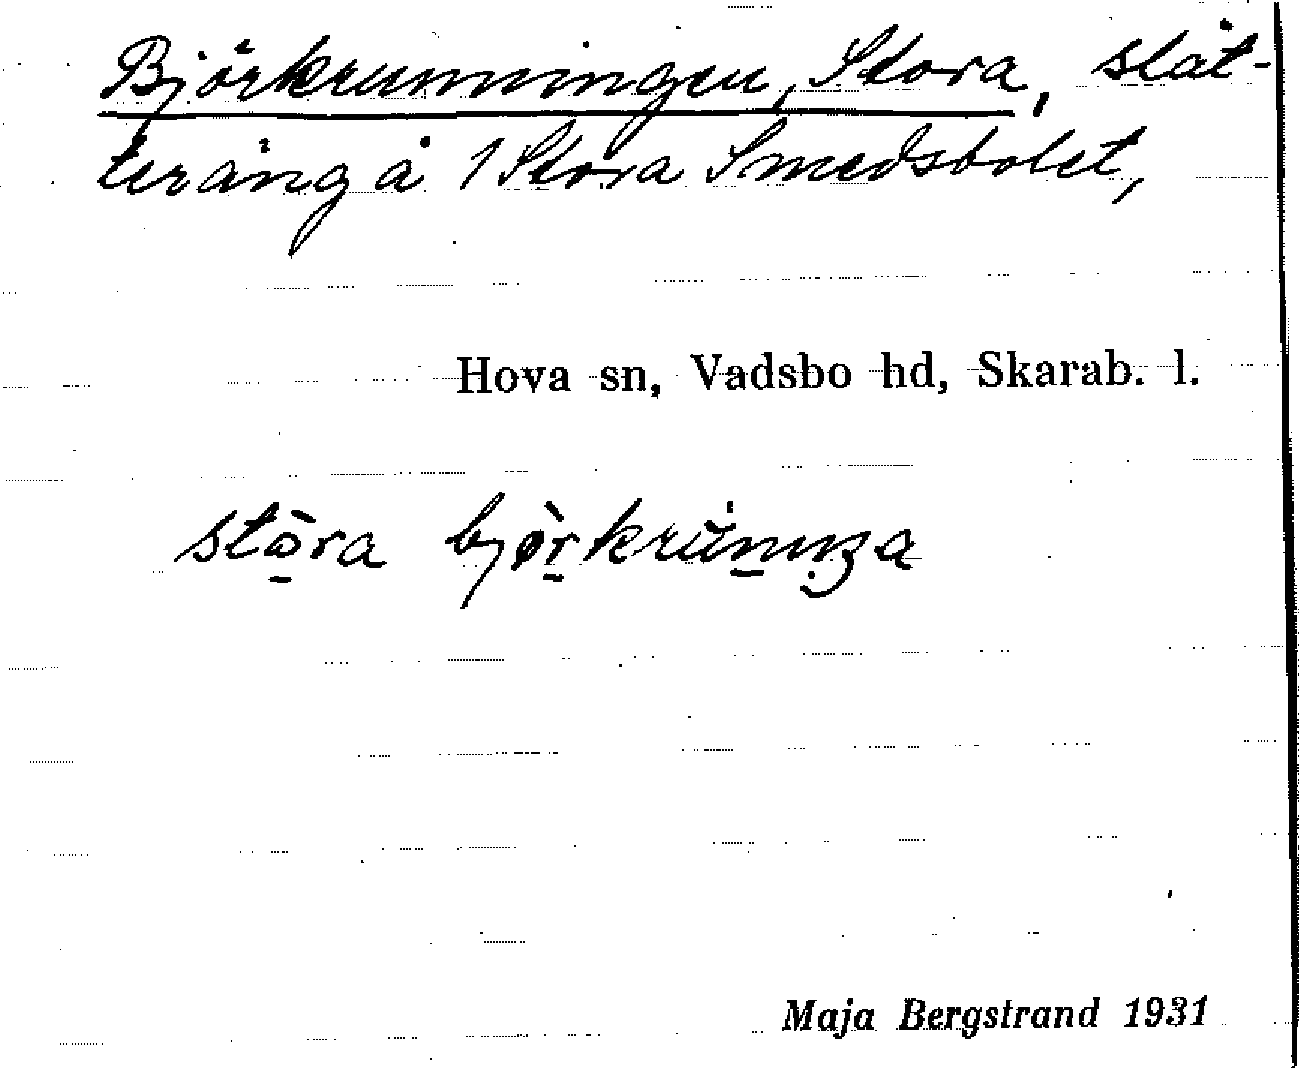 Björkrunningen, Stora, slåt-
teräng å 1 Stora Smedsbolet,
Hova sn, Vadsbo hd, Skarab. l.
stòra bjø̀rkrùnıŋa
Maja Bergstrand 1931